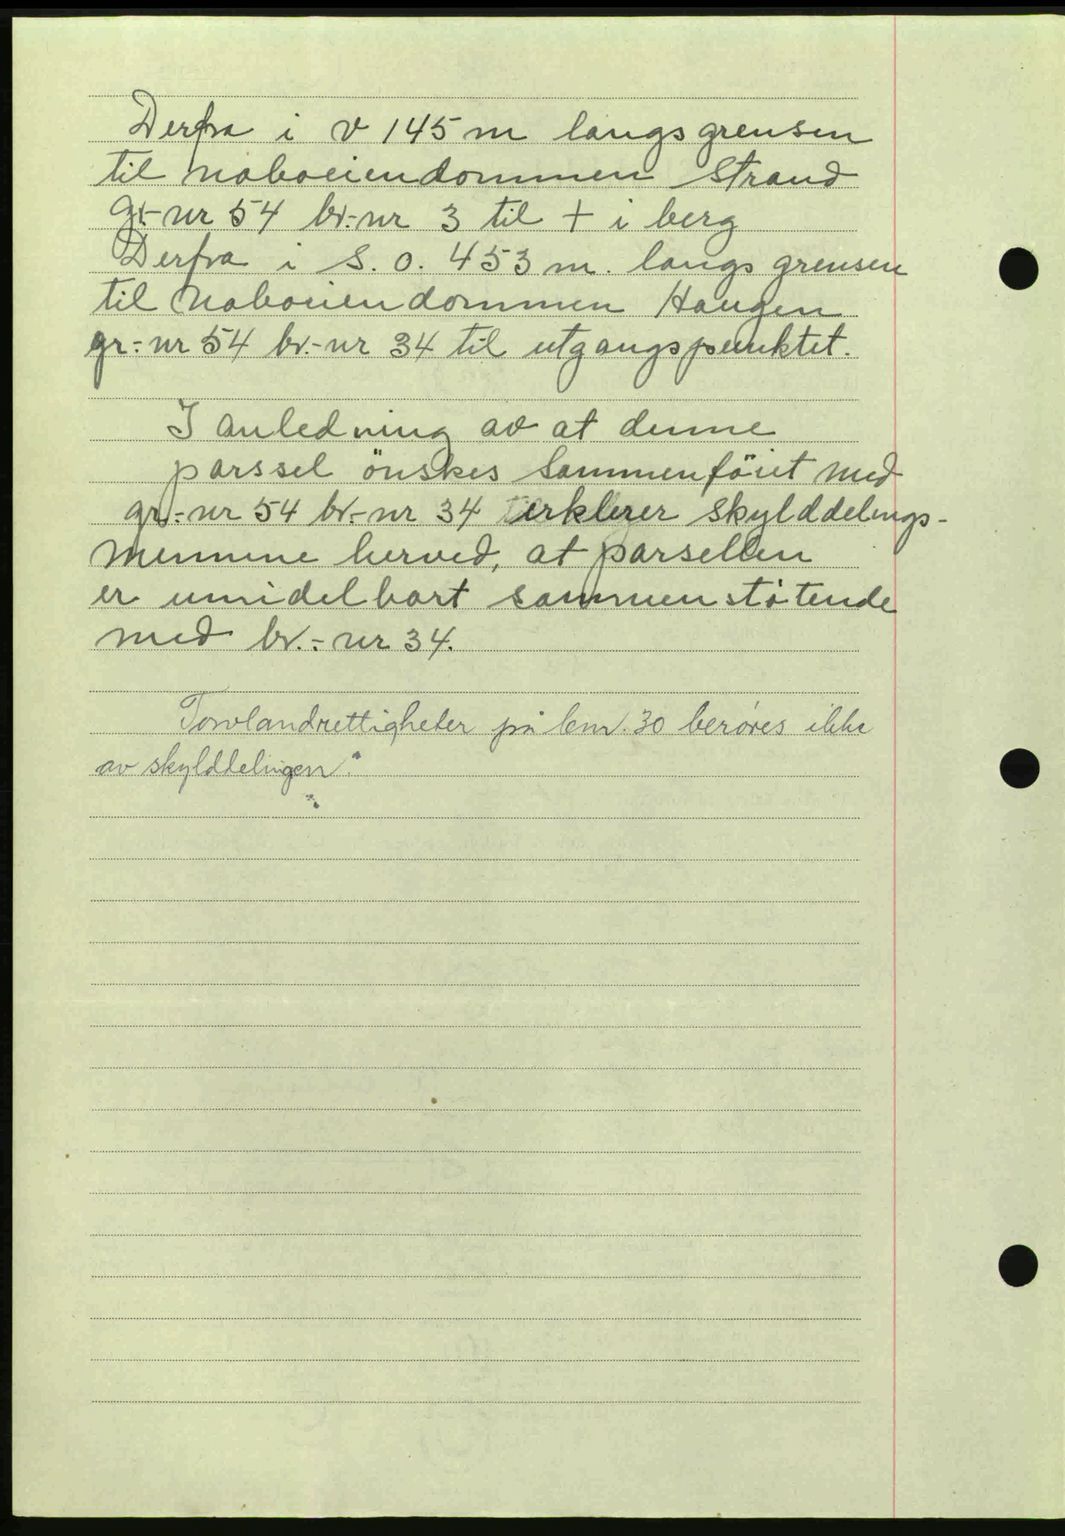 Derfra i v 145 m langs grensen
til naboeiendommen Strand
gr.-nr 54 br.-nr 3 til + i berg
Derfra i S.O. 453 m. langs grensen
til naboeiendommen Haugen
gr.-nr 54 br.-nr 34 til utgangspunktet.
I anledning av at denne
parssel önskes sammenföiet med
gr.-nr 54 br.-nr 34 erklerer skylddelings-
mennene herved, at parsellen
er umidelbart sammenstötende
med br.-nr 34.
Torvlandrettigheter på bnr. 30 berøres ikke
av skylddelingen.